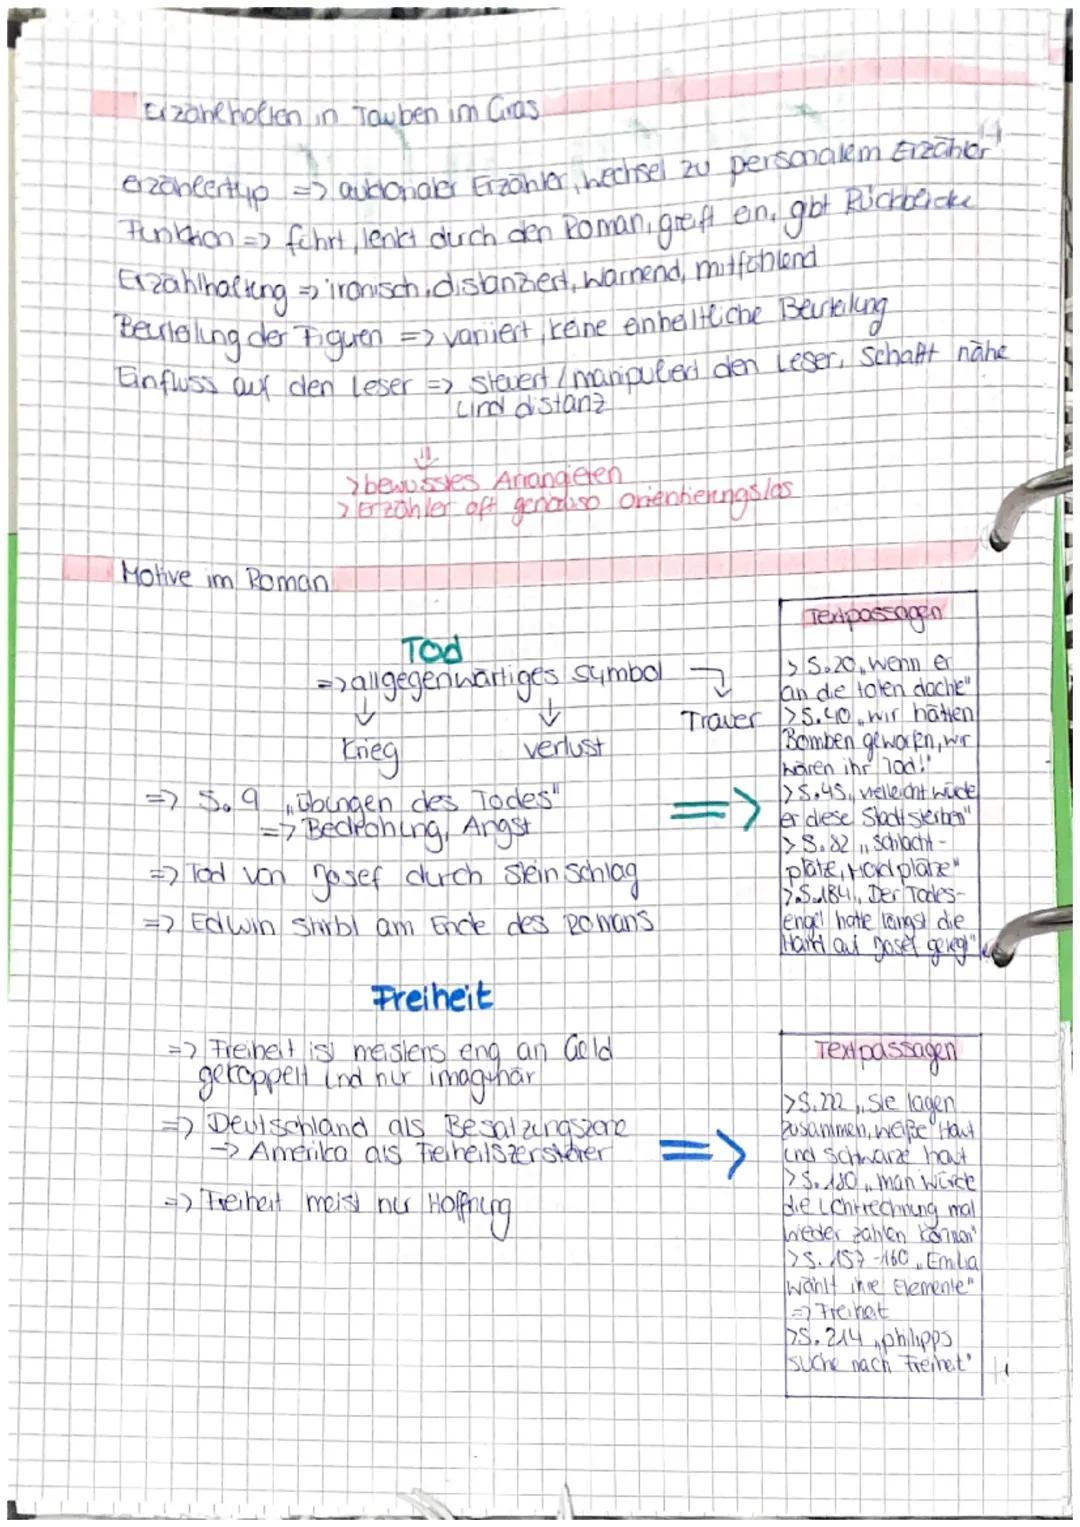 Erzählhalten in Tauben im Gras
erzählertyp => auktorialer Erzähler, wechsel zu personalem Erzähler
Funktion => führt, lenkt durch den Roman, greift ein, gibt Rückblicke
Erzählhaltung => ironisch, distanziert, warnend, mitfühlend
Beurteilung der Figuren => variiert, keine einheitliche Beurteilung
Einfluss auf den Leser => steuert / manipuliert den Leser, schafft nähe
und distanz
⇓
> bewusstes Arrangieren
> Erzähler oft genauso orientierungslos
Motive im Roman
Tod
=> allgegenwärtiges symbol
Krieg verlust Trauer
=> S. 9 „Übungen des Todes"
=> Bedrohung, Angst
=> Tod von Josef durch Steinschlag
=> Edwin stirbt am Ende des Romans
=>
Textpassagen
> S. 20 „wenn er
an die toten dachte"
> S. 40 „wir hätten
Bomben geworfen, wir
wären ihr Tod!"
> S. 45 „vielleicht würde
er diese Stadt sterben"
> S. 82 „Schlacht-
plätze, Mordplätze"
> S. 184 „Der Todes-
engel hatte längst die
Hand auf Josef gelegt"
Freiheit
=> Freiheit ist meistens eng an Geld
gekoppelt und nur imaginär
=> Deutschland als Besatzungszone
-> Amerika als Freiheitszerstörer
=> Freiheit meist nur Hoffnung
=>
Textpassagen
> S. 222 „Sie lagen
zusammen, weiße Haut
und schwarze haut
> S. 180 „man würde
die Lichtrechnung mal
wieder zahlen können"
> S. 157-160 „Emilia
wählt ihre Elemente"
=> Freiheit
> S. 214 „philipps
suche nach Freiheit"